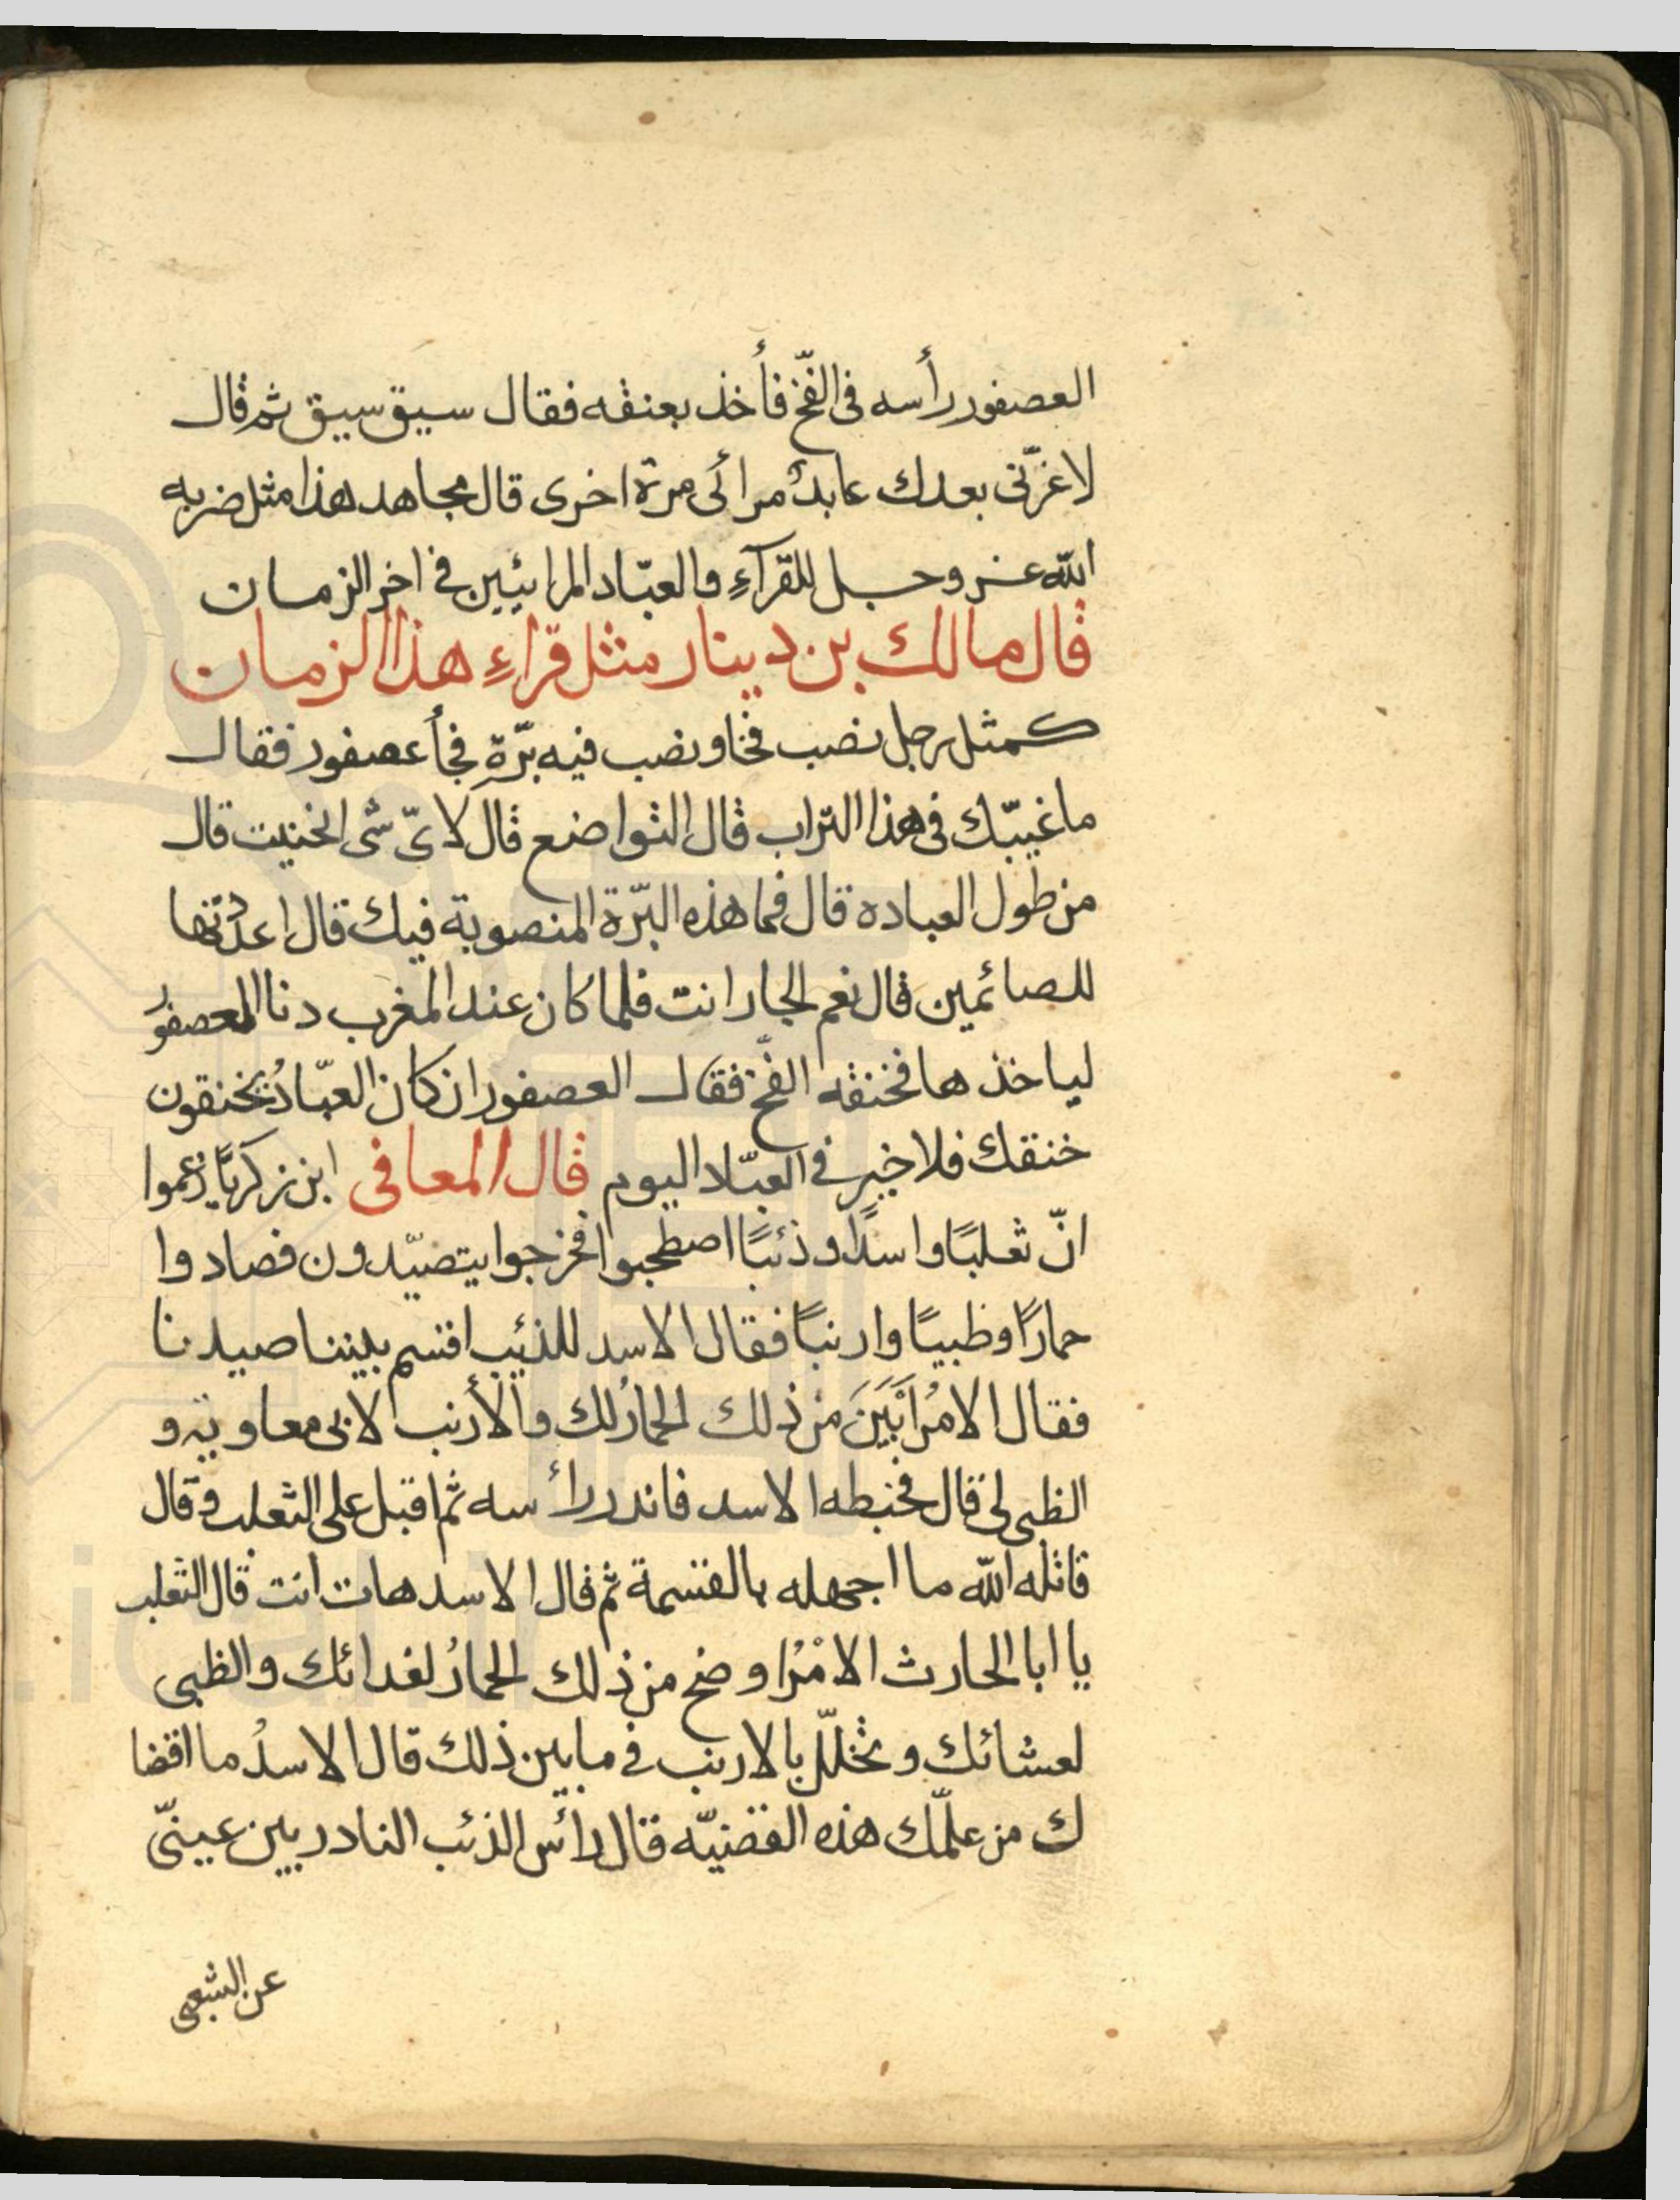 العصفور رأسه فى الفخّ فأخذ بعنقه فقال سيق سيق ثم قال
لا غرّنى بعدك عابدٌ مرائى مرة اخرى قال مجاهد هذا مثل ضربه
الله عز وجل للقرآءِ والعبّاد المرائيين فى اخر الزمان
قال مالك بن دينار مثل قراءِ هذا الزمان
كمثل رجل نصب فخا ونصب فيه برّة فجأ عصفور فقال
ما غيبّك فى هذا التراب قال التواضع قال لاىّ شى انحنيت قال
من طول العباده قال فما هذه البرّة المنصوبة فيك قال اعددتها
للصائمين قال نعم الجار انت فلما كان عند المغرب دنا العصفور
لياخذها فخنقه الفخّ فقال العصفور ان كان العبّادُ يخنقون
خنقك فلا خير فى العبّاد اليوم قال المعافى ابن زكريّا زعموا
انّ ثعلبًا واسدًا وذئبًا اصطحبوا فخرجوا يتصيّدون فصادوا
حمارًا وظبيًا وارنبًا فقال الاسد للذئب اقسم بيننا صيدنا
فقال الامرُ ابْيَنَ من ذلك الحمارُ لك والأرنب لابى معاوية و
الظبى لى قال فخبطه الاسد فاندر رأسه ثم اقبل على الثعلب وقال
قاتله الله ما اجهله بالقسمة ثم قال الاسد هات انت قال الثعلب
يا ابا الحارث الامْرُ اوضح من ذلك الحمارُ لغدائك والظبى
لعشائك وتخلّل بالارنب فى ما بين ذلك قال الاسدُ ما اقضا
ك من علّمك هذه القضيّه قال رأس الذئب النادر بين عينىّ
عن الشعبى